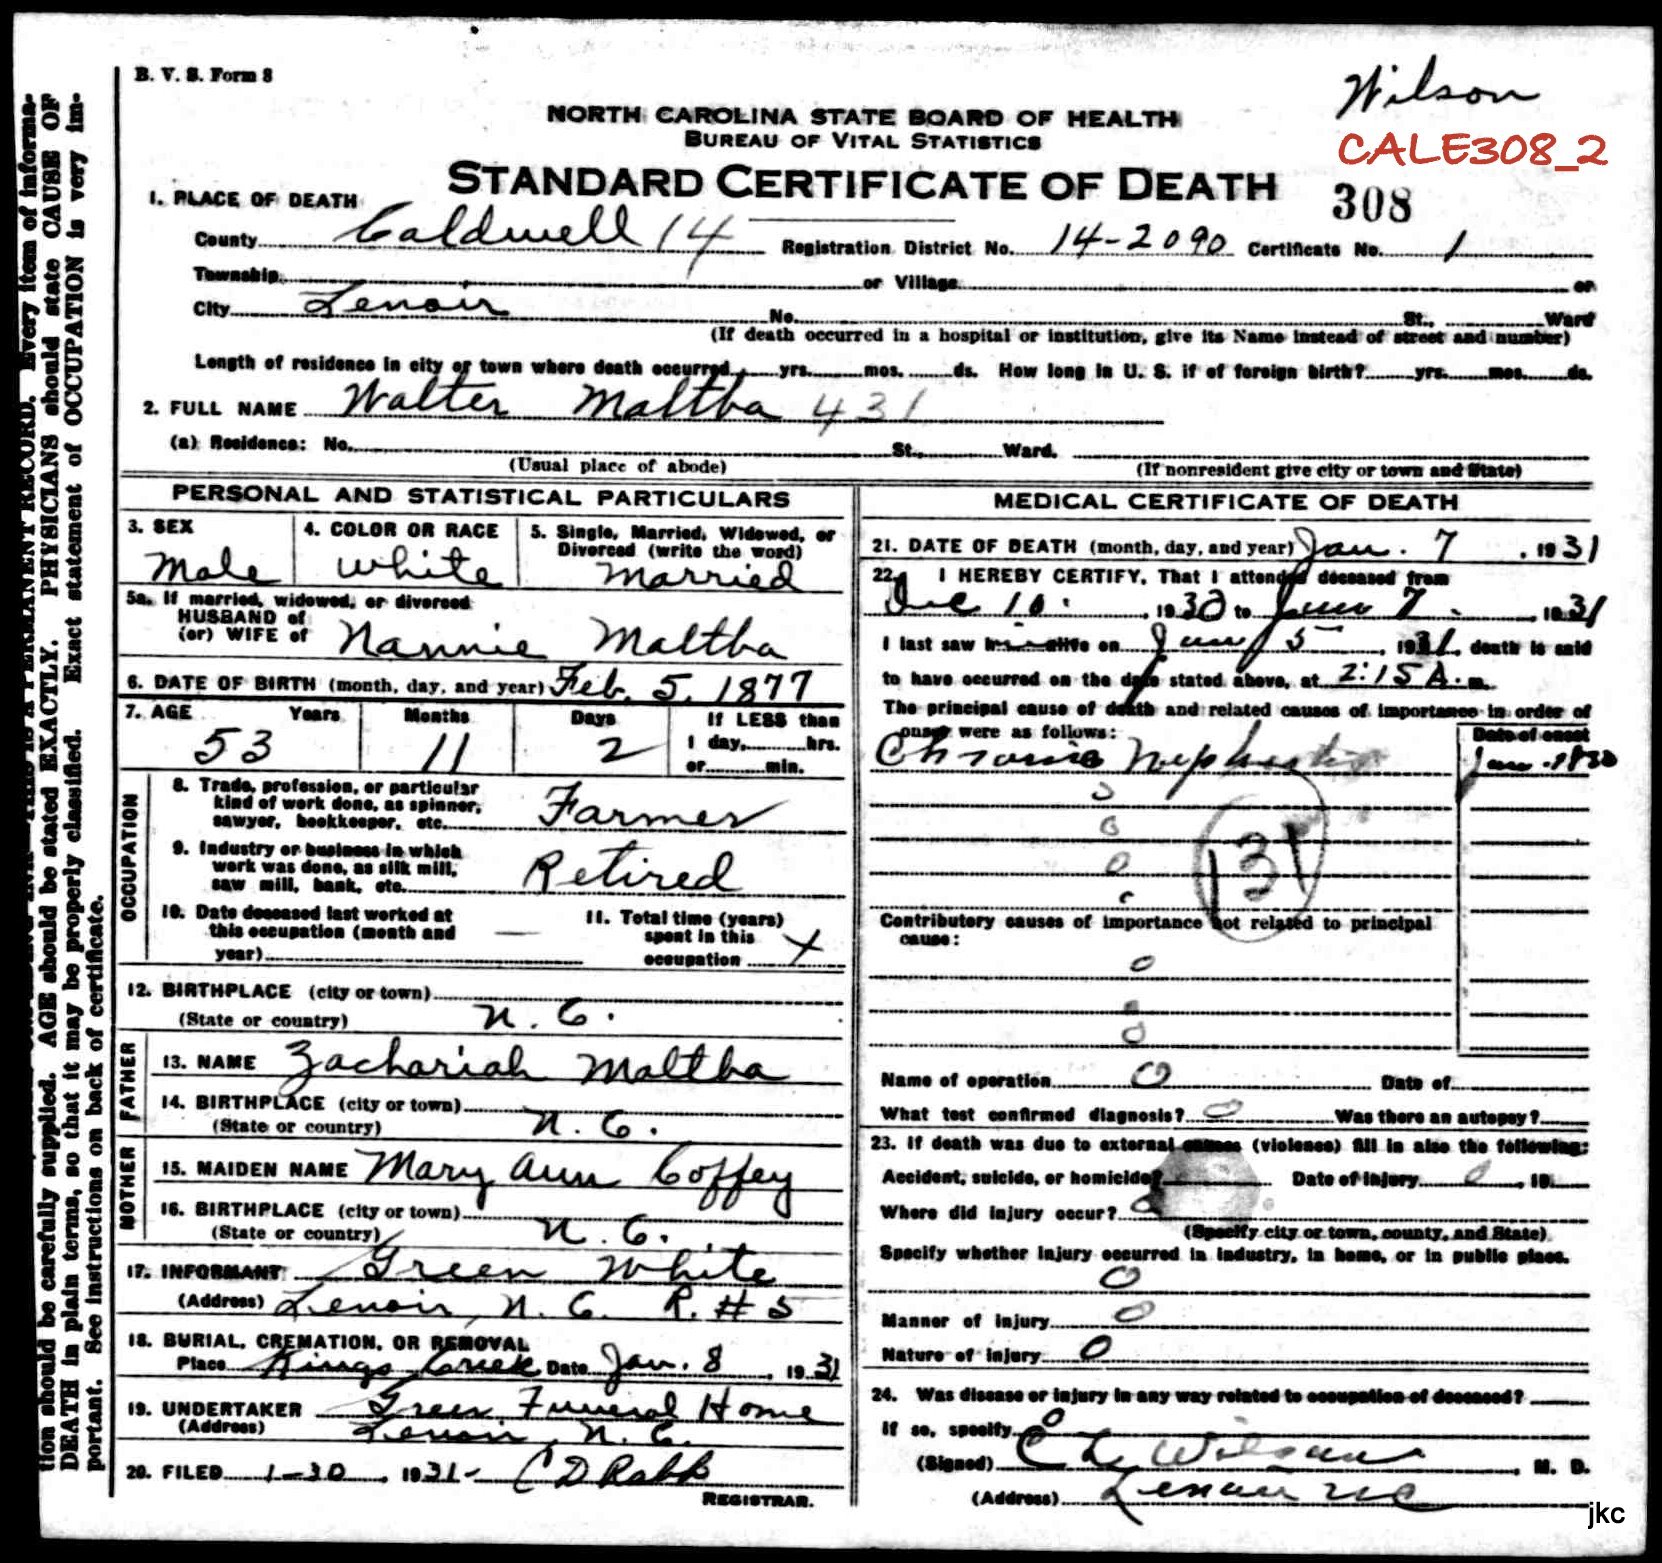 B. V. S. Form 8
Wilson
NORTH CAROLINA STATE BOARD OF HEALTH
BUREAU OF VITAL STATISTICS
CALE308_2
STANDARD CERTIFICATE OF DEATH
308
1. PLACE OF DEATH
County Caldwell 14 Registration District No. 14-2090 Certificate No. 1
Township or Village or
City Lenoir No. St., Ward
(If death occurred in a hospital or institution, give its Name instead of street and number)
Length of residence in city or town where death occurred yrs. mos. ds. How long in U. S. if of foreign birth? yrs. mos. ds.
2. FULL NAME Walter Maltba 431
(a) Residence: No. St., Ward.
(Usual place of abode) (If nonresident give city or town and State)
PERSONAL AND STATISTICAL PARTICULARS
3. SEX 4. COLOR OR RACE 5. Single, Married, Widowed, or
Divorced (write the word)
Male White Married
5a. If married, widowed, or divorced
HUSBAND of
(or) WIFE of Nannie Maltba
6. DATE OF BIRTH (month, day, and year) Feb. 5, 1877
7. AGE Years Months Days If LESS than
53 11 2 1 day, hrs.
or min.
OCCUPATION
8. Trade, profession, or particular
kind of work done, as spinner,
sawyer, bookkeeper, etc. Farmer
9. Industry or business in which
work was done, as silk mill,
saw mill, bank, etc. Retired
10. Date deceased last worked at
this occupation (month and
year) —
11. Total time (years)
spent in this
occupation X
12. BIRTHPLACE (city or town)
(State or country) N. C.
FATHER
13. NAME Zachariah Maltba
14. BIRTHPLACE (city or town)
(State or country) N. C.
MOTHER
15. MAIDEN NAME Mary Ann Coffey
16. BIRTHPLACE (city or town)
(State or country) N. C.
17. INFORMANT Green White
(Address) Lenoir, N. C. R. # 5
18. BURIAL, CREMATION, OR REMOVAL
Place Kings Creek Date Jan. 8, 1931
19. UNDERTAKER Greer Funeral Home
(Address) Lenoir, N. C.
20. FILED 1-30, 1931- C D Rabb
REGISTRAR.
MEDICAL CERTIFICATE OF DEATH
21. DATE OF DEATH (month, day, and year) Jan. 7, 1931
22. I HEREBY CERTIFY, That I attended deceased from
Dec 10, 1930 to Jan 7, 1931
I last saw alive on Jan 5, 1931, death is said
to have occurred on the date stated above, at 2:15 A. m.
The principal cause of death and related causes of importance in order of
onset were as follows: Date of onset
Chronic Nephritis Jan.
131
Contributory causes of importance not related to principal
cause:
0
0
Name of operation 0 Date of
What test confirmed diagnosis? 0 Was there an autopsy?
23. If death was due to external causes (violence) fill in also the following:
Accident, suicide, or homicide? Date of injury 0, 19
Where did injury occur? 0
(Specify city or town, county, and State)
Specify whether injury occurred in industry, in home, or in public place.
0
Manner of injury 0
Nature of injury 0
24. Was disease or injury in any way related to occupation of deceased?
If so, specify 0
(Signed) C L Wilson, M. D.
(Address) Lenoir NC
jkc
tion should be carefully supplied. AGE should be stated EXACTLY. PHYSICIANS should state CAUSE OF
DEATH in plain terms, so that it may be properly classified. Exact statement of OCCUPATION is very im-
portant. See instructions on back of certificate.
THIS IS A PERMANENT RECORD. Every item of informa-